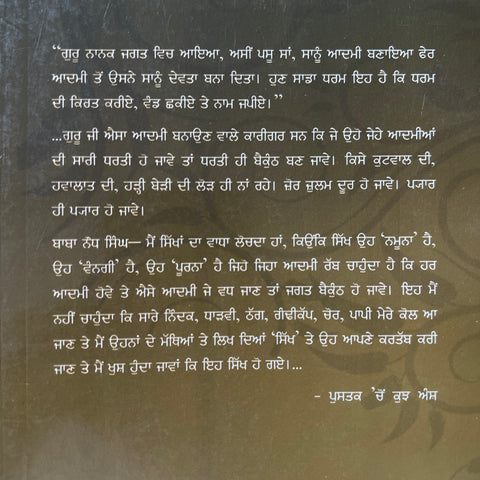 “ਗੁਰੂ ਨਾਨਕ ਜਗਤ ਵਿਚ ਆਇਆ, ਅਸੀਂ ਪਸੂ ਸਾਂ, ਸਾਨੂੰ ਆਦਮੀ ਬਣਾਇਆ ਫੇਰ
ਆਦਮੀ ਤੋਂ ਉਸਨੇ ਸਾਨੂੰ ਦੇਵਤਾ ਬਨਾ ਦਿਤਾ। ਹੁਣ ਸਾਡਾ ਧਰਮ ਇਹ ਹੈ ਕਿ ਧਰਮ
ਦੀ ਕਿਰਤ ਕਰੀਏ, ਵੰਡ ਛਕੀਏ ਤੇ ਨਾਮ ਜਪੀਏ।”
...ਗੁਰੂ ਜੀ ਐਸਾ ਆਦਮੀ ਬਨਾਉਣ ਵਾਲੇ ਕਾਰੀਗਰ ਸਨ ਕਿ ਜੇ ਉਹੋ ਜੇਹੇ ਆਦਮੀਆਂ
ਦੀ ਸਾਰੀ ਧਰਤੀ ਹੋ ਜਾਵੇ ਤਾਂ ਧਰਤੀ ਹੀ ਬੈਕੁੰਠ ਬਣ ਜਾਵੇ। ਕਿਸੇ ਕੁਟਵਾਲ ਦੀ,
ਹਵਾਲਾਤ ਦੀ, ਹੜ੍ਹੀ ਬੇੜੀ ਦੀ ਲੋੜ ਹੀ ਨਾਂ ਰਹੇ। ਜ਼ੋਰ ਜ਼ੁਲਮ ਦੂਰ ਹੋ ਜਾਵੇ। ਪ੍ਯਾਰ
ਹੀ ਪ੍ਯਾਰ ਹੋ ਜਾਵੇ।
ਬਾਬਾ ਨੌਧ ਸਿੰਘ— ਮੈਂ ਸਿੱਖਾਂ ਦਾ ਵਾਧਾ ਲੋਚਦਾ ਹਾਂ, ਕਿਉਂਕਿ ਸਿੱਖ ਉਹ ‘ਨਮੂਨਾ’ ਹੈ,
ਉਹ ‘ਵੰਨਗੀ’ ਹੈ, ਉਹ ‘ਪੂਰਨਾ’ ਹੈ ਜਿਹੋ ਜਿਹਾ ਆਦਮੀ ਰੱਬ ਚਾਹੁੰਦਾ ਹੈ ਕਿ ਹਰ
ਆਦਮੀ ਹੋਵੇ ਤੇ ਐਸੇ ਆਦਮੀ ਜੇ ਵਧ ਜਾਣ ਤਾਂ ਜਗਤ ਬੈਕੁੰਠ ਹੋ ਜਾਵੇ। ਇਹ ਮੈਂ
ਨਹੀਂ ਚਾਹੁੰਦਾ ਕਿ ਸਾਰੇ ਨਿੰਦਕ, ਧਾੜਵੀ, ਠੱਗ, ਗੰਢੀਕੱਪ, ਚੋਰ, ਪਾਪੀ ਮੇਰੇ ਕੋਲ ਆ
ਜਾਣ ਤੇ ਮੈਂ ਉਹਨਾਂ ਦੇ ਮੱਥਿਆਂ ਤੇ ਲਿਖ ਦਿਆਂ ‘ਸਿੱਖ’ ਤੇ ਉਹ ਆਪਣੇ ਕਰਤੱਬ ਕਰੀ
ਜਾਣ ਤੇ ਮੈਂ ਖੁਸ਼ ਹੁੰਦਾ ਜਾਵਾਂ ਕਿ ਇਹ ਸਿੱਖ ਹੋ ਗਏ।...
- ਪੁਸਤਕ ’ਚੋਂ ਕੁਝ ਅੰਸ਼